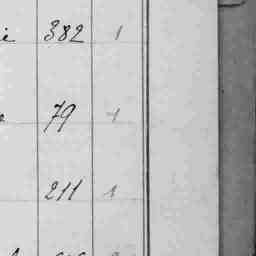 382 1
79 1
211 1